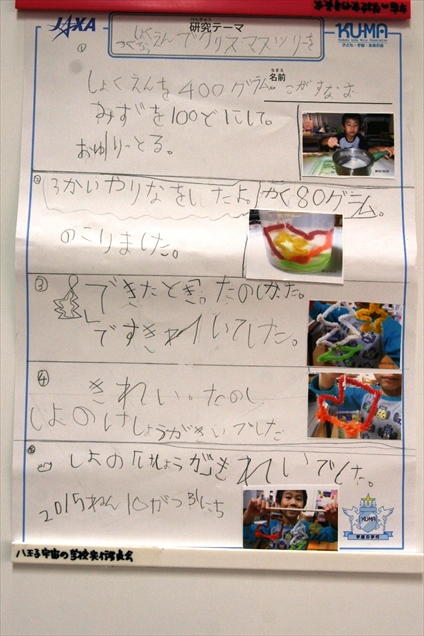 JAXA
けんきゅう
研究テーマ
KU-MA
子ども・宇宙・未来の会
しょくえんでクリスマスツリーを
つくろう
①
なまえ
名前
しょくえんを400グラム。
みずを100どにして。
おゆりーとる。
②
13かいやりなをしたよ。やく80グラム。
のこりました。
③
できたとき。たのしかった。
ですきれいでした。
④
きれい。たのし
しよのけしょうがきれいでした
しよのけしょうがきれいでした。
2015ねん10がつ31にち
KUMA
宇宙の学校
八王子宇宙の学校実行委員会